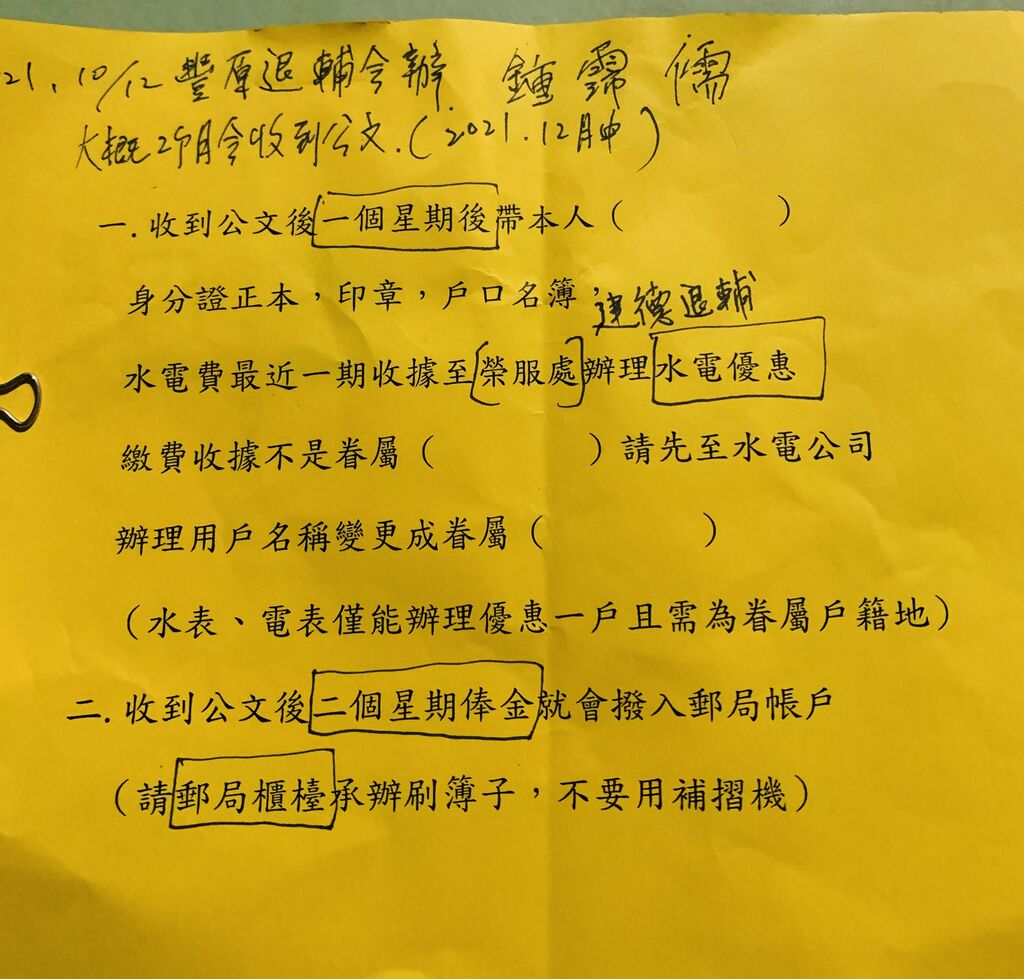 21.10/12豐原退輔會辦 鍾霈儒
大概2個月會收到公文.(2021.12月中)
一.收到公文後一個星期後帶本人(　　　　)
身分證正本，印章，戶口名簿，
建德退輔
水電費最近一期收據至[榮服處]辦理水電優惠
繳費收據不是眷屬(　　　　)請先至水電公司
辦理用戶名稱變更成眷屬(　　　　)
(水表、電表僅能辦理優惠一戶且需為眷屬戶籍地)
二.收到公文後二個星期俸金就會撥入郵局帳戶
(請郵局櫃檯承辦刷簿子，不要用補摺機)